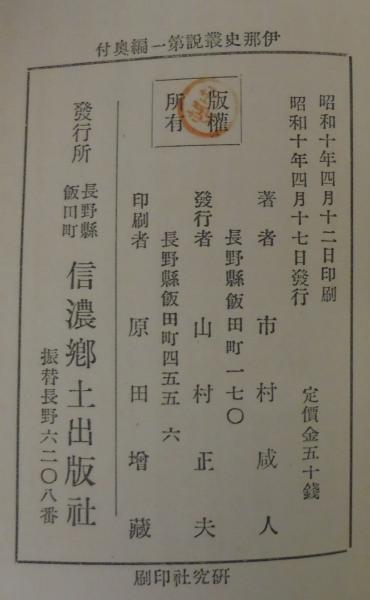 伊那史叢説第一編奧付
昭和十年四月十二日印刷
昭和十年四月十七日發行
定價金五十錢
版權
所有
著者 市村咸人
長野縣飯田町一七〇
發行者 山村正夫
長野縣飯田町四五五六
印刷者 原田增藏
發行所 長野縣飯田町 信濃鄕土出版社
振替長野六二〇八番
研究社印刷